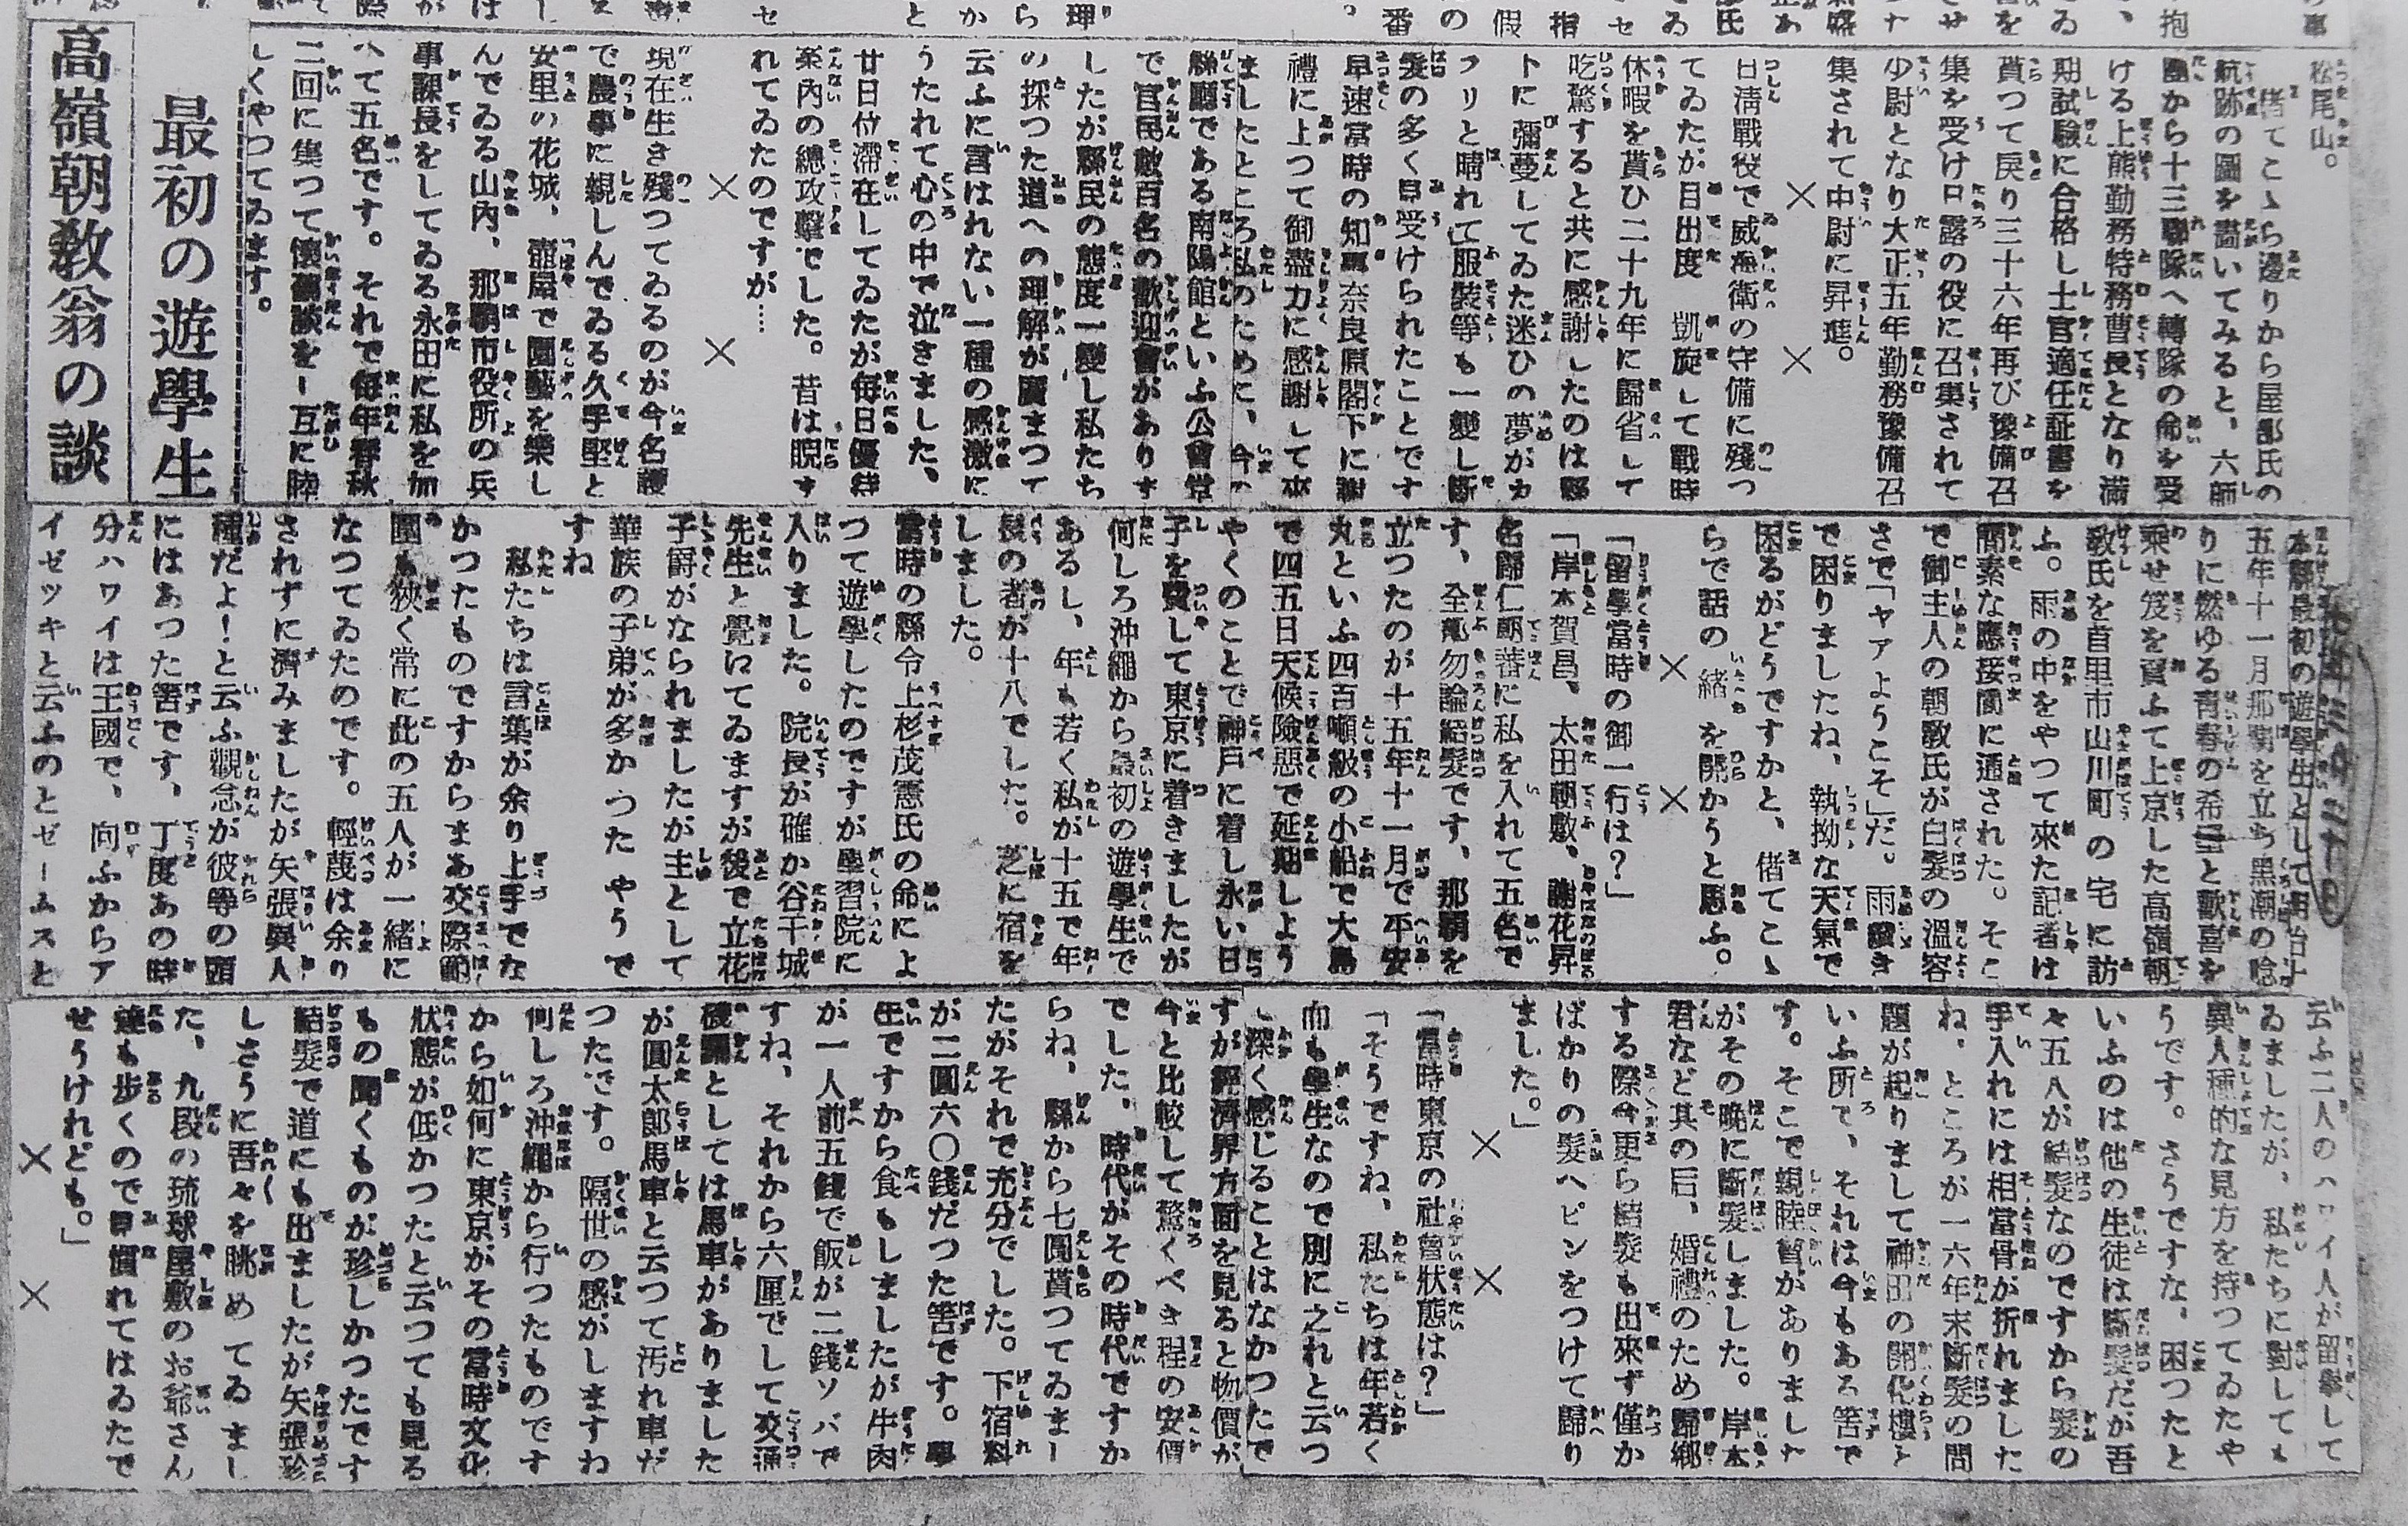 松尾山。
偖てこゝら邊りから屋部氏の
航跡の圖を畵いてみると、六師
團から十三聯隊へ轉隊の命を受
ける上熊勤務特務曹長となり滿
期試驗に合格し士官適任証書を
貰つて戻り三十六年再び豫備召
集を受け日露の役に召集されて
少尉となり大正五年勤務豫備召
集されて中尉に昇進。
×　×
日淸戰役で威海衛の守備に殘つ
てゐたが目出度 凱旋して戰時
休暇を貰ひ二十九年に歸省して
吃驚すると共に感謝したのは縣
下に彌蔓してゐた迷ひの夢がカ
ラリと晴れて服裝等も一變し斷
髮の多く見受けられたことです
早速當時の知事奈良原閣下に謝
禮に上つて御盡力に感謝して來
ましたところ私のために、今の
縣廳である南陽館といふ公會堂
で官民數百名の歡迎會がありま
したが縣民の態度一變し私たち
の採つた道への理解が廣まつて
云ふに言はれない一種の感激に
うたれて心の中で泣きました、
廿日位滯在してゐたが每日優待
案內の總攻擊でした。昔は睨ま
れてゐたのですが…
×　×
現在生き殘つてゐるのが今名護
で農事に親しんでゐる久手堅と
安里の花城、壺屋で園藝を樂し
んでゐる山內、那覇市役所の兵
事課長をしてゐる永田に私を加
へて五名です。それで每年春秋
二回に集つて懷舊談を－互に睦
しくやつてゐます。
最初の遊學生
高嶺朝敎翁の談
本縣最初の遊學生として明治十
五年十一月那覇を立ち黑潮の唸
りに燃ゆる靑春の希望と歡喜を
乘せ笈を負ふて上京した高嶺朝
敎氏を首里市山川町の宅に訪
ふ。雨の中をやつて來た記者は
簡素な應接間に通された。そこ
で御主人の朝敎氏が白髮の溫容
さで「ヤアようこそ」だ。雨續き
で困りましたね、執拗な天氣で
困るがどうですかと、偖てこゝ
らで話の緒を開かうと思ふ。
×　×
「留學當時の御一行は？」
「岸本賀昌、太田朝敷、謝花昇
名歸仁朝蕃に私を入れて五名で
す、全部勿論結髮です、那覇を
立つたのが十五年十一月で平安
丸といふ四百噸級の小船で大島
で四五日天候險惡で延期しよう
やくのことで神戶に着し永い日
子を費して東京に着きましたが
何しろ沖繩から最初の遊學生で
あるし、年も若く私が十五で年
長の者が十八でした。芝に宿を
しました。
當時の縣令上杉茂憲氏の命によ
つて遊學したのですが學習院に
入りました。院長が確か谷干城
先生と覺にてゐますが後で立花
子爵がなられましたが主として
華族の子弟が多かつたやうで
すね
私たちは言葉が余り上手でな
かつたものですからまあ交際範
圍も狹く常に此の五人が一緒に
なつてゐたのです。輕蔑は余り
されずに濟みましたが矢張異人
種だよ！と云ふ觀念が彼等の頭
にはあつた筈です、丁度あの時
分ハワイは王國で、向ふからア
イゼツキと云ふのとゼームスと
云ふ二人のハワイ人が留學して
ゐましたが、私たちに對しても
異人種的な見方を持つてゐたや
うです。さうですな、困つたと
いふのは他の生徒は斷髮だが吾
々五人が結髮なのですから髮の
手入れには相當骨が折れました
ね。ところが一六年末斷髮の問
題が起りまして神田の開化樓と
いふ所で、それは今もある筈で
す。そこで親睦會がありました
がその晚に斷髮しました。岸本
君など其の后、婚禮のため歸鄕
する際今更ら結髮も出來ず僅か
ばかりの髮へピンをつけて歸り
ました。」
×　×
「當時東京の社會狀態は？」
「そうですね、私たちは年若く
而も學生なので別に之れと云つ
て深く感じることはなかつたで
すが經濟界方面を見ると物價が
今と比較して驚くべき程の安價
でした、時代がその時代ですか
らね、縣から七圓貰つてゐまし
たがそれで充分でした。下宿料
が二圓六〇錢だつた筈です。學
生ですから食もしましたが牛肉
が一人前五錢で飯が二錢ソバで
すね、それから六厘でして交通
機關としては馬車がありました
が圓太郞馬車と云つて汚れ車だ
つたです。隔世の感がしますね
何しろ沖繩から行つたものです
から如何に東京がその當時文化
狀態が低かつたと云つても見る
もの聞くものが珍しかつたです
結髮で道にも出ましたが矢張珍
しさうに吾々を眺めてゐまし
た、九段の琉球屋敷のお爺さん
達も步くので見慣れてはゐたで
せうけれども。」
×　×